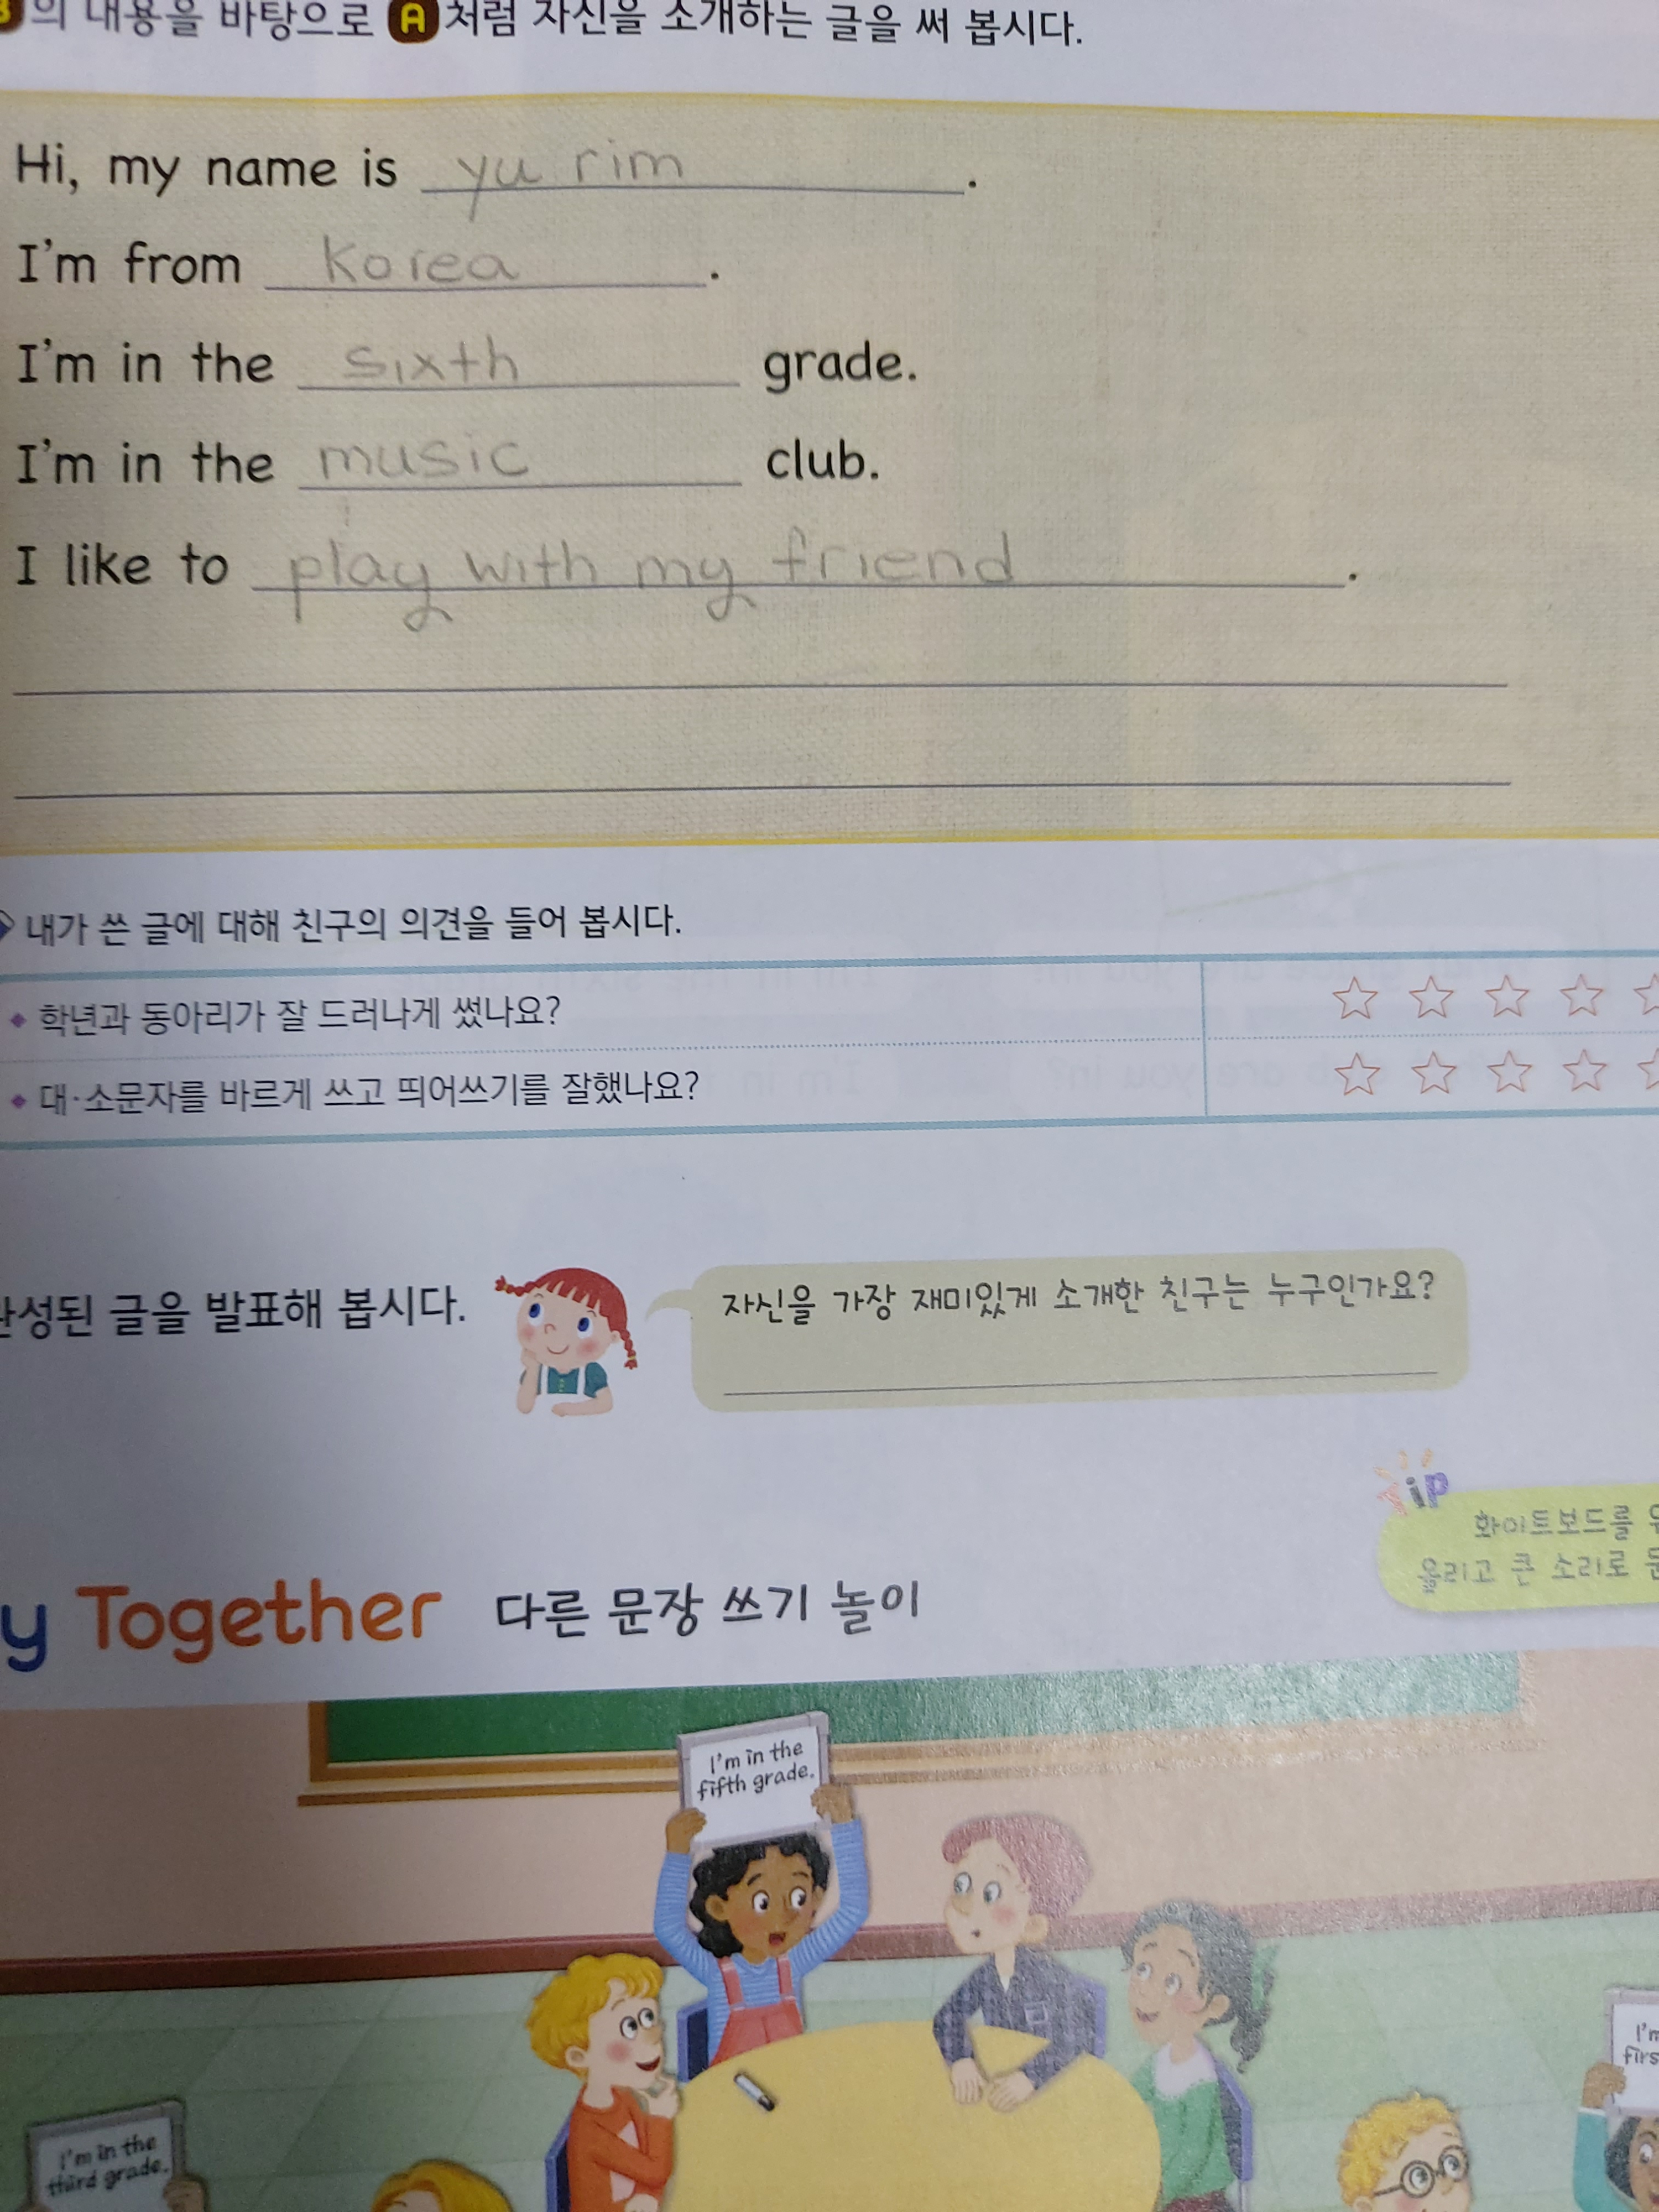 의 내용을 바탕으로 A 처럼 자신을 소개하는 글을 써 봅시다.
Hi, my name is yu rim.
I'm from Korea.
I'm in the sixth grade.
I'm in the music club.
I like to play with my friend.
내가 쓴 글에 대해 친구의 의견을 들어 봅시다.
학년과 동아리가 잘 드러나게 썼나요?
대·소문자를 바르게 쓰고 띄어쓰기를 잘했나요?
완성된 글을 발표해 봅시다.
자신을 가장 재미있게 소개한 친구는 누구인가요?
Tip
화이트보드를
올리고 큰 소리로
y Together 다른 문장 쓰기 놀이
I'm in the
fifth grade.
I'm in the
third grade.